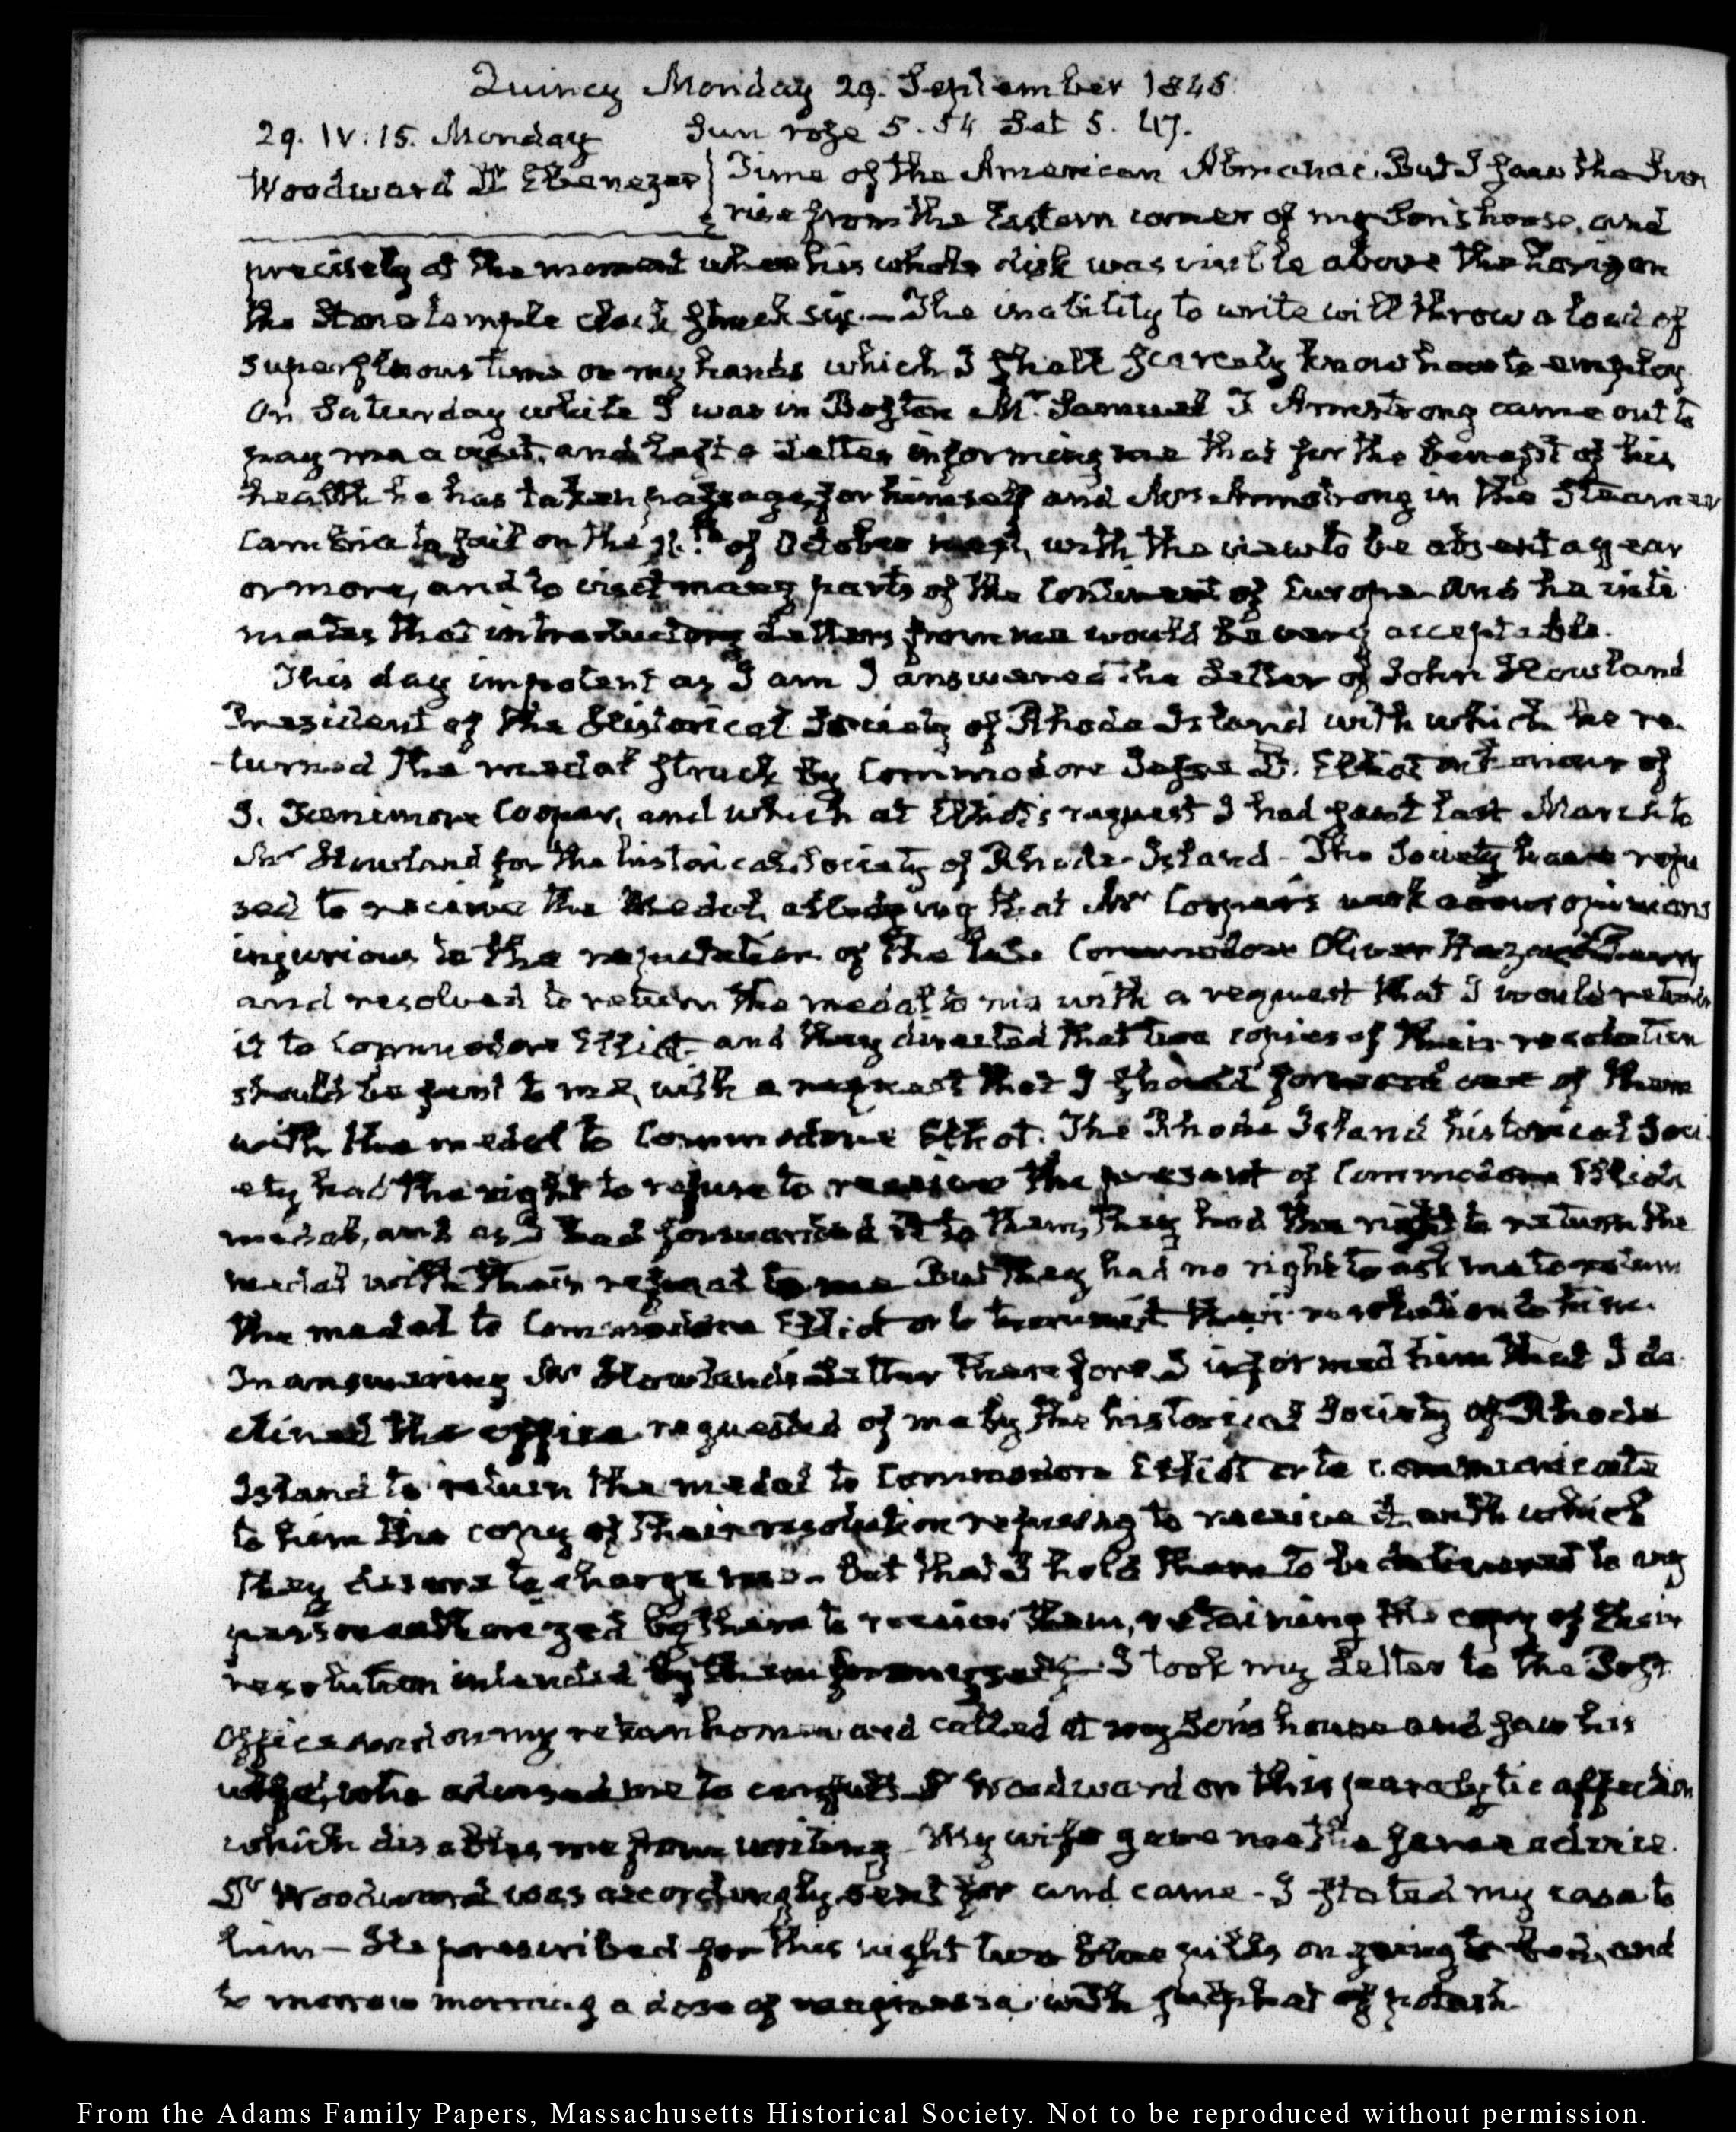 Quincy Monday 29. September 1845.
29. IV:15. Monday Sun rose 5.54 Set 5.47.
Woodward Dr Ebenezer Time of the American Almanac. But I saw the Sun
rise from the Eastern corner of my Son's house, and
precisely at the moment when his whole disk was visible above the horizon
the Stone temple clock struck six. — The inability to write will throw a load of
superfluous time on my hands which I shall scarcely know how to employ.
On Saturday while I was in Boston Mr. Samuel T Armstrong came out to
pay me a visit, and left a Letter informing me that for the benefit of his
health he has taken passage for himself and Mrs Armstrong in the Steamer
Cambria to sail on the of October next, with the view to be absent a year
or more, and to visit many parts of the Continent of Europe and he inti-
mates that introductory Letters from me would be very acceptable.
This day impotent as I am I answered the Letter of John Howland
President of the Historical Society of Rhode Island with which he re-
turned the medal struck by Commodore Jesse D. Elliot in honour of
J. Fenimore Cooper, and which at Elliot's request I had sent last March to
Mr Howland for the historical Society of Rhode-Island - The Society have refu
sed to receive the Medal, alledging that Mr Cooper's work opinions
injurious to the reputation of the late Commodore Oliver Hazard Perry
and resolved to return the medal to me with a request that I would return
it to Commodore Elliot - and they directed that two copies of their resolution
should be sent to me, with a request that I should forward one of them
with the medal to Commodore Elliot. The Rhode Island historical Soci-
ety had the right to refuse to receive the present of Commodore Elliot's
medal, and as I had forwarded it to them, they had the right to return the
medal with their refusal to me But they had no right to ask me to return
the medal to Commodore Elliot or to transmit their resolution to him.
In answering Mr Howland's Letter therefore I informed him that I de-
clined the office requested of me by the historical Society of Rhode
Island to return the medal to Commodore Elliot or to communicate
to him the copy of their resolution refusing to receive it with which
they desire to charge me - But that I hold them to be delivered to any
person authorized by them to receive them, retaining the copy of their
resolution intended by them for myself - I took my Letter to the Post
Office and on my return homeward called at my Son's house and saw his
wife, who advised me to consult Dr Woodward on this paralytic affection
which disables me from writing My wife gave me the same advice.
Dr Woodward was accordingly sent for and came - I stated my case to
him - He prescribed for this night two blue pills on going to bed, and
to morrow morning a dose of magnesia with sulphat of potash
From the Adams Family Papers, Massachusetts Historical Society. Not to be reproduced without permission.